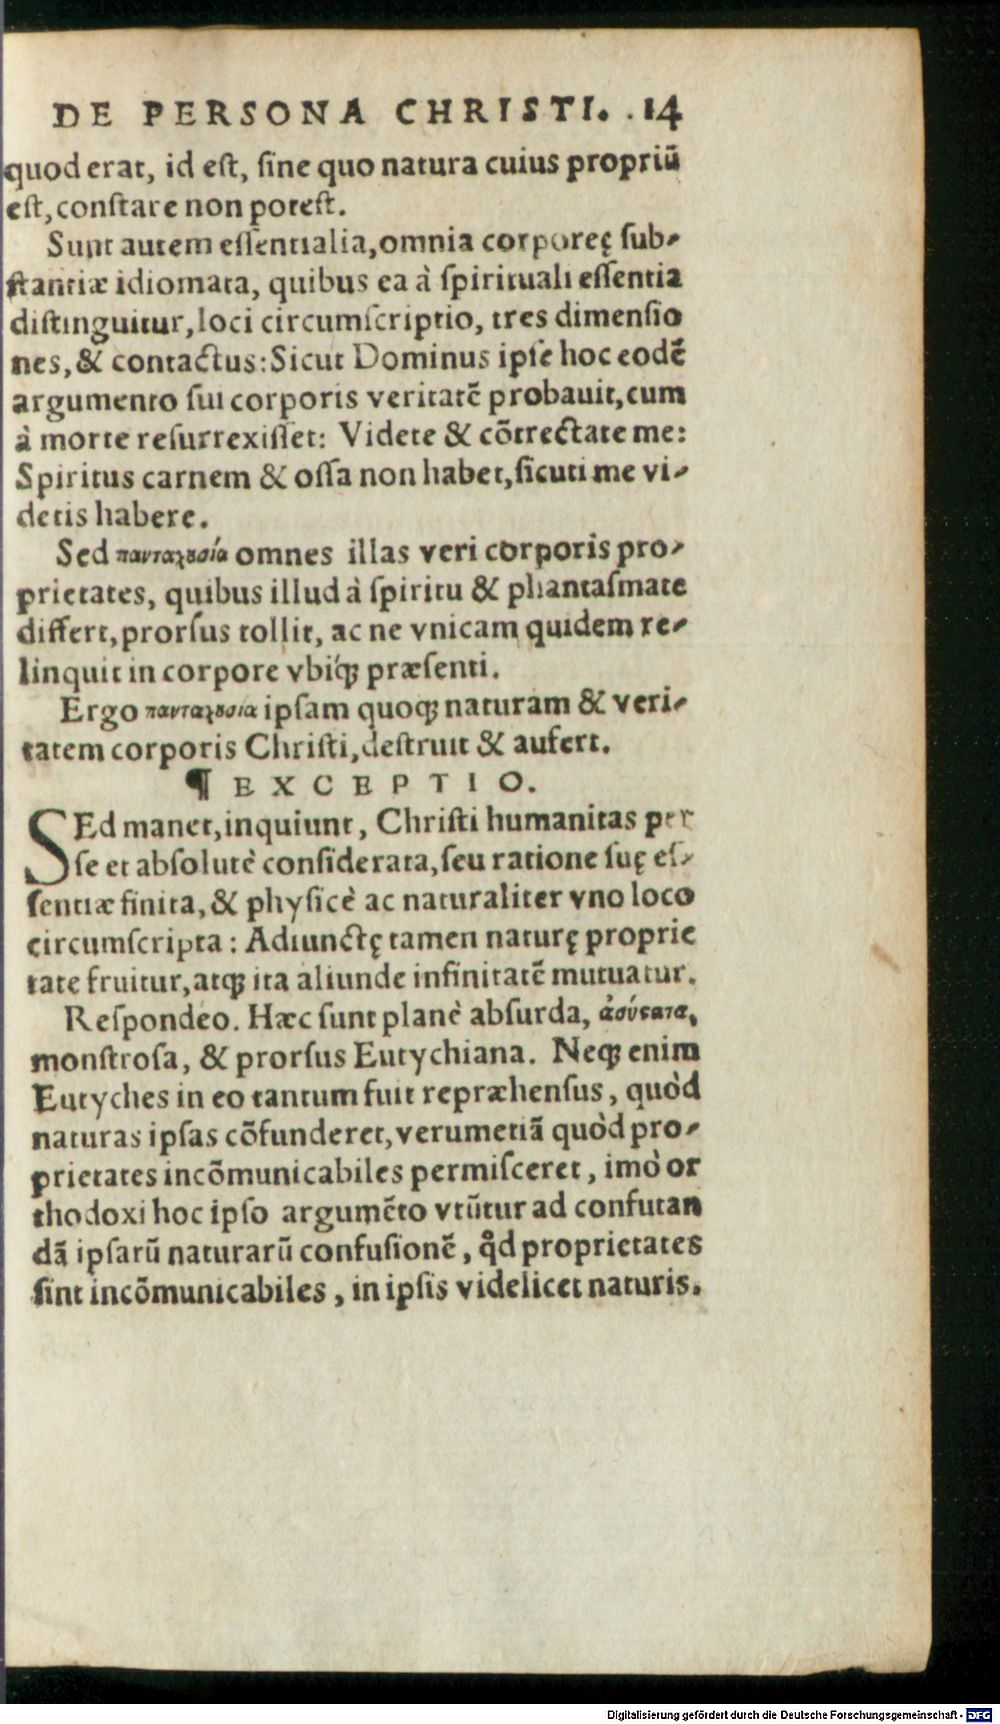 DE PERSONA CHRISTI. .14
quod erat, id est, ſine quo natura cuius propriũ
est, constare non potest.
Sunt autem eſſentialia, omnia corporeę ſub-
ſtantiæ idiomata, quibus ea à ſpirituali eſſentia
diſtinguitur, loci circumſcriptio, tres dimenſio
nes, & contactus: Sicut Dominus ipſe hoc eodẽ
argumento ſui corporis veritatẽ probauit, cum
à morte reſurrexiſſet: Videte & cõtrectate me:
Spiritus carnem & oſſa non habet, ſicuti me vi-
detis habere.
Sed πανταχȣσία omnes illas veri corporis pro-
prietates, quibus illud à ſpiritu & phantaſmate
differt, prorſus tollit, ac ne vnicam quidem re-
linquit in corpore vbiq́ꝫ præſenti.
Ergo πανταχȣσια ipſam quoqꝫ naturam & veri-
tatem corporis Chriſti, deſtruit & aufert.
¶ EXCEPTIO.
SEd manet, inquiunt, Chriſti humanitas per
ſe et abſolutè conſiderata, ſeu ratione ſuę eſ-
ſentiæ finita, & phyſicè ac naturaliter vno loco
circumſcripta: Adiunctę tamen naturę proprie
tate fruitur, atqꝫ ita aliunde infinitatẽ mutuatur.
Reſpondeo. Hæc ſunt planè abſurda, ἀσύςατα,
monſtroſa, & prorſus Eutychiana. Neqꝫ enim
Eutyches in eo tantum fuit repræhenſus, quòd
naturas ipſas cõfunderet, verumetiã quòd pro-
prietates incõmunicabiles permiſceret, imò or
thodoxi hoc ipſo argumẽto vtũtur ad confutan
dã ipſarũ naturarũ confuſionẽ, q̊d proprietates
ſint incõmunicabiles, in ipſis videlicet naturis.
Digitalisierung gefördert durch die Deutsche Forschungsgemeinschaft - DFG